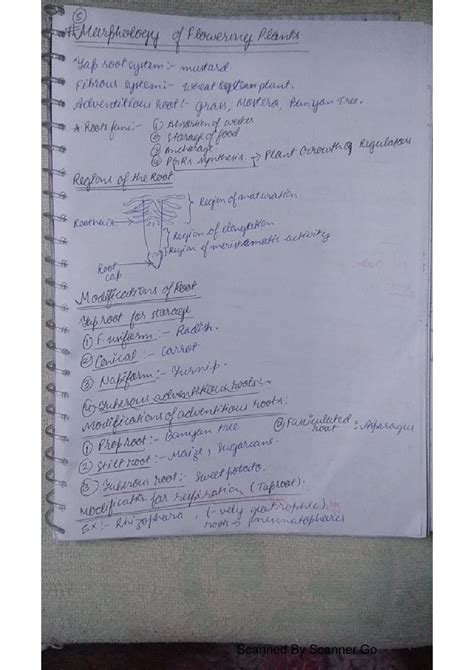 5
# Morphology of Flowering Plants
Tap root system:- mustard
Fibrous system:- wheat plant.
Adventitious Root:- grass, Monstera, Banyan Tree.
* Roots func:- ① Absortion of water
② Storage of food
③ Anchorage
④ PGRs synthesis → Plant Growth Regulators
Regions of the Root
Region of maturation
Root hair
Region of elongation
Region of meristematic activity
Root cap
Modifications of Root
Taproot for storage
① Fusiform:- Radish.
② Conical:- Carrot
③ Napiform:- Turnip.
Tuberous adventitious roots:-
Modifications of adventitious roots:-
① Proproot:- Banyan tree
④ Fasciculated root: Asparagus
② Stilt root:- Maize, Sugarcane.
③ Tuberous root:- Sweet potato.
Modification for respiration (Taproot):-
Ex:- Rhizophora, (-vely geotrophic)
roots → pneumatophores
Scanned By Scanner Go